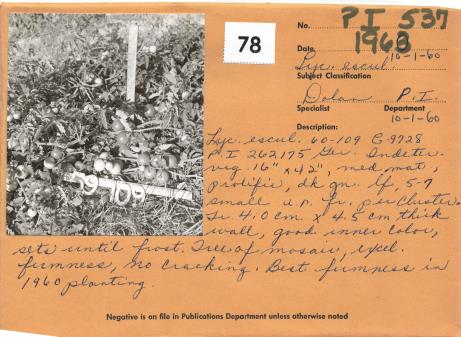 78
No. P I 537
1963
Date 10-1-60
Lyc. escul.
Subject Classification
Dolan P.I.
Specialist Department
10-1-60
Description:
Lyc. escul. 60-109 G-9728
P I 262175 Ger. Indeter.
vig. 16" x 42", med. mat.,
prolific, dk gn. lf, 5-7
small u.r. fr. per cluster.
Fr. 4.0 cm. x 4.5 cm thick
wall, good inner color,
sets until frost. Free of mosaic, excel.
firmness, no cracking. Best firmness in
1960 planting.
59-109
Negative is on file in Publications Department unless otherwise noted